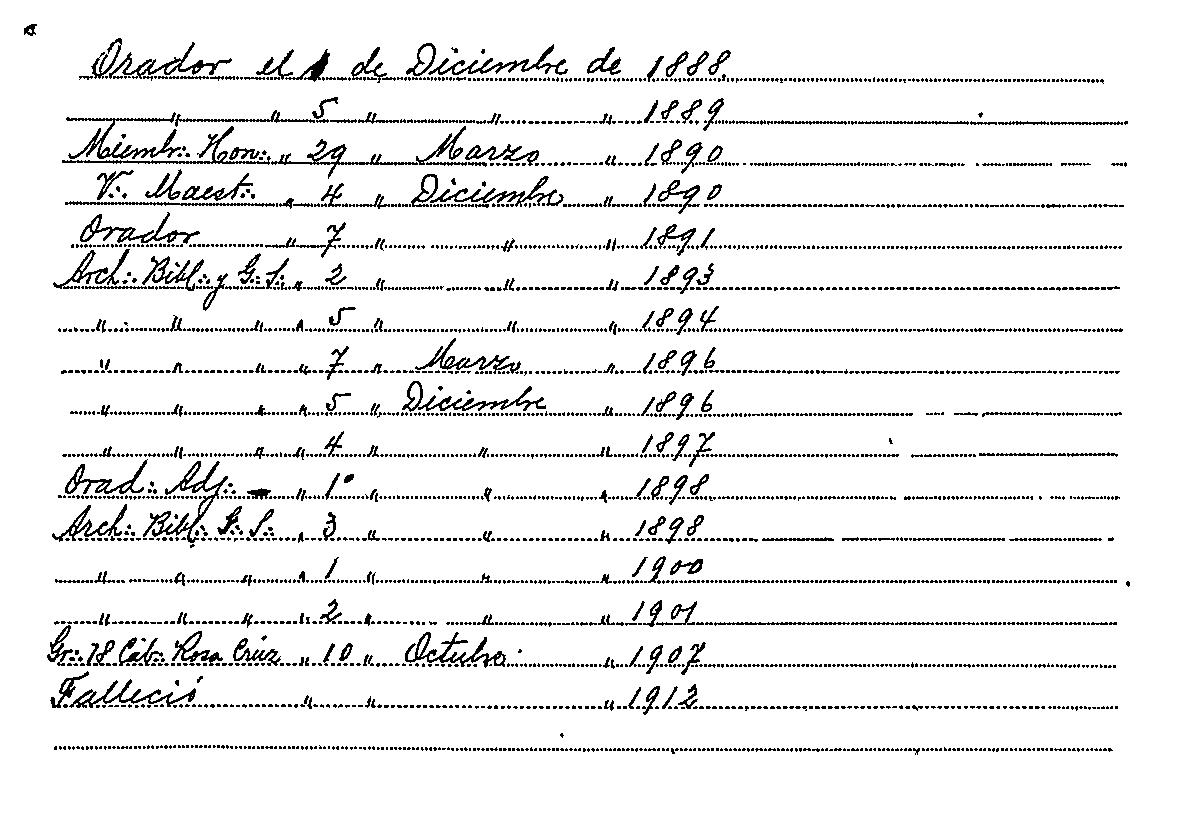 Orador el 1 de Diciembre de 1888.
" " 5 " " " 1889
Miembr∴ Hon∴ " 29 " Marzo " 1890
V∴ Maest∴ " 4 " Diciembre " 1890
Orador " 7 " " " 1891
Arch∴ Bibl∴ y G∴ S∴ " 2 " " " 1893
" " " " 5 " " " 1894
" " " " 7 " Marzo " 1896
" " " " 5 " Diciembre " 1896
" " " " 4 " " " 1897
Orad∴ Adj∴ — " 1° " " " 1898
Arch∴ Bibl∴ G∴ S∴ " 3 " " " 1898
" " " " 1 " " " 1900
" " " " 2 " " " 1901
Gr∴ 18 Cab∴ Rosa Crúz " 10 " Octubre " 1907
Falleció " " " 1912